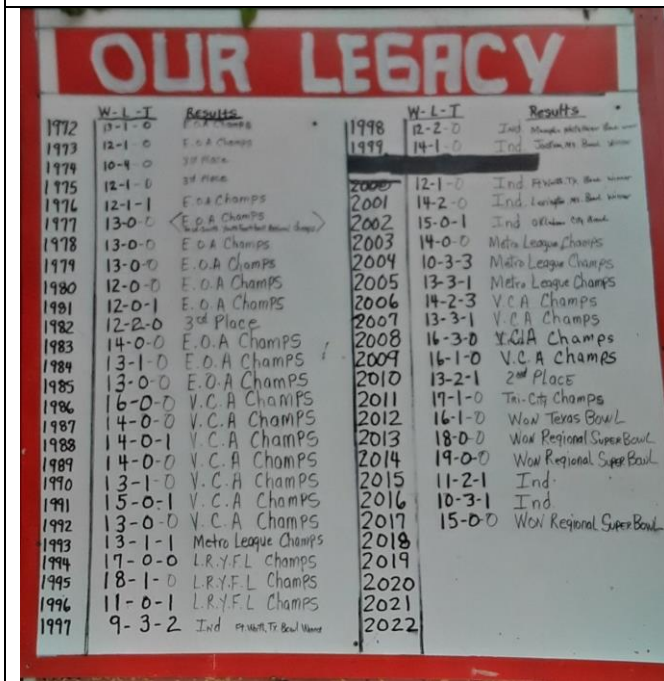 OUR LEGACY
W-L-T Results
1972 13-1-0 E.O.A Champs
1973 12-1-0 E.O.A Champs
1974 10-4-0 3rd Place
1975 12-1-0 3rd Place
1976 12-1-1 E.O.A Champs
1977 13-0-0 E.O.A Champs
1978 13-0-0 E.O.A Champs
1979 13-0-0 E.O.A Champs
1980 12-0-0 E.O.A Champs
1981 12-0-1 E.O.A Champs
1982 12-2-0 3rd Place
1983 14-0-0 E.O.A Champs
1984 13-1-0 E.O.A Champs
1985 13-0-0 E.O.A Champs
1986 16-0-0 V.C.A Champs
1987 14-0-0 V.C.A Champs
1988 14-0-1 V.C.A Champs
1989 14-0-0 V.C.A Champs
1990 13-1-0 V.C.A Champs
1991 15-0-1 V.C.A Champs
1992 13-0-0 V.C.A Champs
1993 13-1-1 Metro League Champs
1994 17-0-0 L.R.Y.F.L Champs
1995 18-1-0 L.R.Y.F.L Champs
1996 11-0-1 L.R.Y.F.L Champs
1997 9-3-2 Ind Ft. Worth, Tx. Bowl
W-L-T Results
1998 12-2-0 Ind
1999 14-1-0 Ind Bowl Winner
2000 12-1-0 Ind. Ft Worth, Tx. Bowl Winner
2001 14-2-0 Ind. Bowl Winner
2002 15-0-1 Ind Oklahoma City Bowl
2003 14-0-0 Metro League Champs
2004 10-3-3 Metro League Champs
2005 13-3-1 Metro League Champs
2006 14-2-3 V.C.A Champs
2007 13-3-1 V.C.A Champs
2008 16-3-0 V.C.A Champs
2009 16-1-0 V.C.A Champs
2010 13-2-1 2nd Place
2011 17-1-0 Tri-City Champs
2012 16-1-0 Won Texas Bowl
2013 18-0-0 Won Regional Super Bowl
2014 19-0-0 Won Regional Super Bowl
2015 11-2-1 Ind.
2016 10-3-1 Ind.
2017 15-0-0 Won Regional Super Bowl
2018
2019
2020
2021
2022